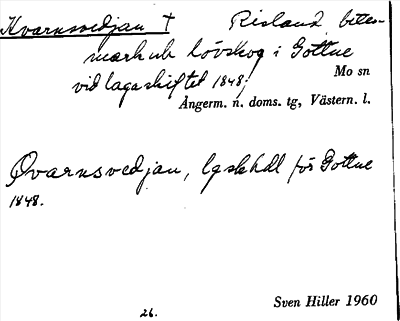 Kvarnsvedjan † Risland, betes-
mark och lövskog i Gottne
vid lagaskiftet 1848. Mo sn
Ångerm. n. doms. tg, Västern. l.
Qvarnsvedjan, lgskhdl för Gottne
1848.
26. Sven Hiller 1960